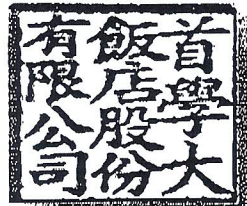 首學大
飯店股份
有限公司